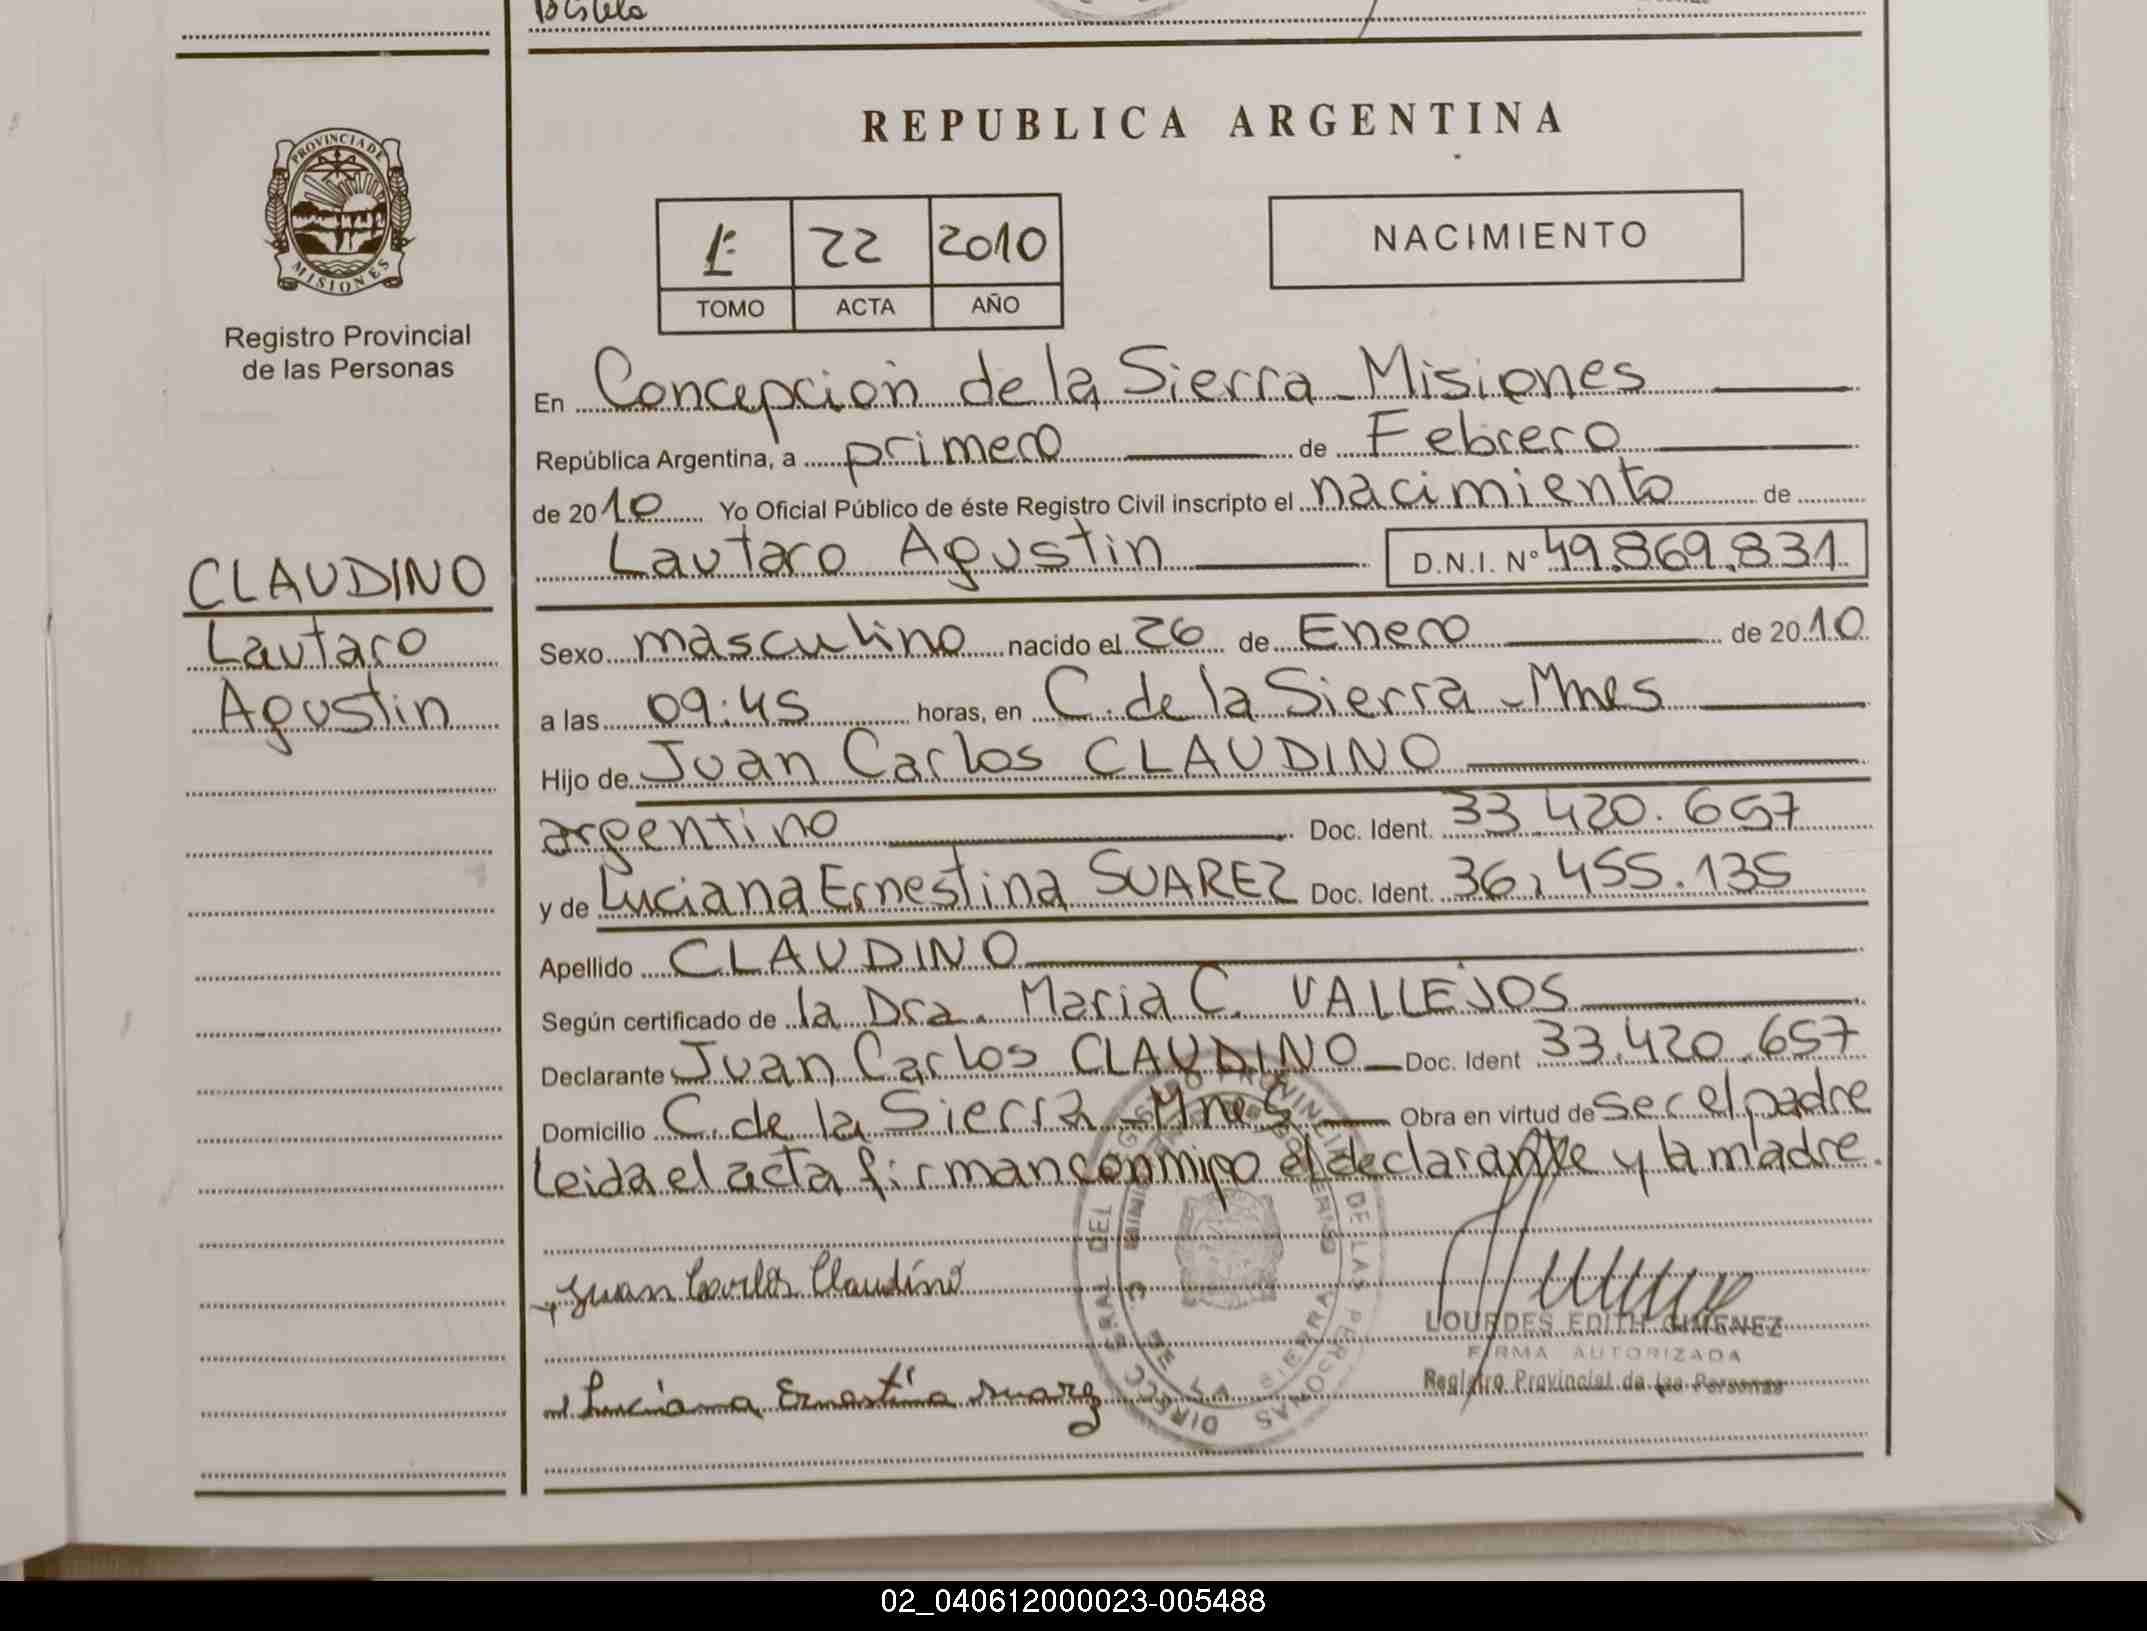 PROVINCIA DE
MISIONES
Registro Provincial
de las Personas
CLAUDINO
Lautaro
Agustin
REPUBLICA ARGENTINA
1º 22 2010
TOMO ACTA AÑO
NACIMIENTO
En Concepción de la Sierra - Misiones
República Argentina, a primero de Febrero
de 2010 Yo Oficial Público de éste Registro Civil inscripto el nacimiento de
Lautaro Agustin D.N.I. Nº 49.869.831
Sexo masculino nacido el 26 de Enero de 2010
a las 09:45 horas, en C. de la Sierra - Mnes
Hijo de Juan Carlos CLAUDINO
argentino Doc. Ident. 33.420.657
y de Luciana Ernestina SUAREZ Doc. Ident. 36.455.135
Apellido CLAUDINO
Según certificado de la Dra. Maria C. VALLEJOS
Declarante Juan Carlos CLAUDINO Doc. Ident 33.420.657
Domicilio C. de la Sierra - Mnes Obra en virtud de ser el padre
Leida el acta firman conmigo el declarante y la madre.
Juan Carlos Claudino
LOURDES EDITH GIMENEZ
FIRMA AUTORIZADA
Registro Provincial de las Personas
Luciana Ernestina Suarez
02_040612000023-005488